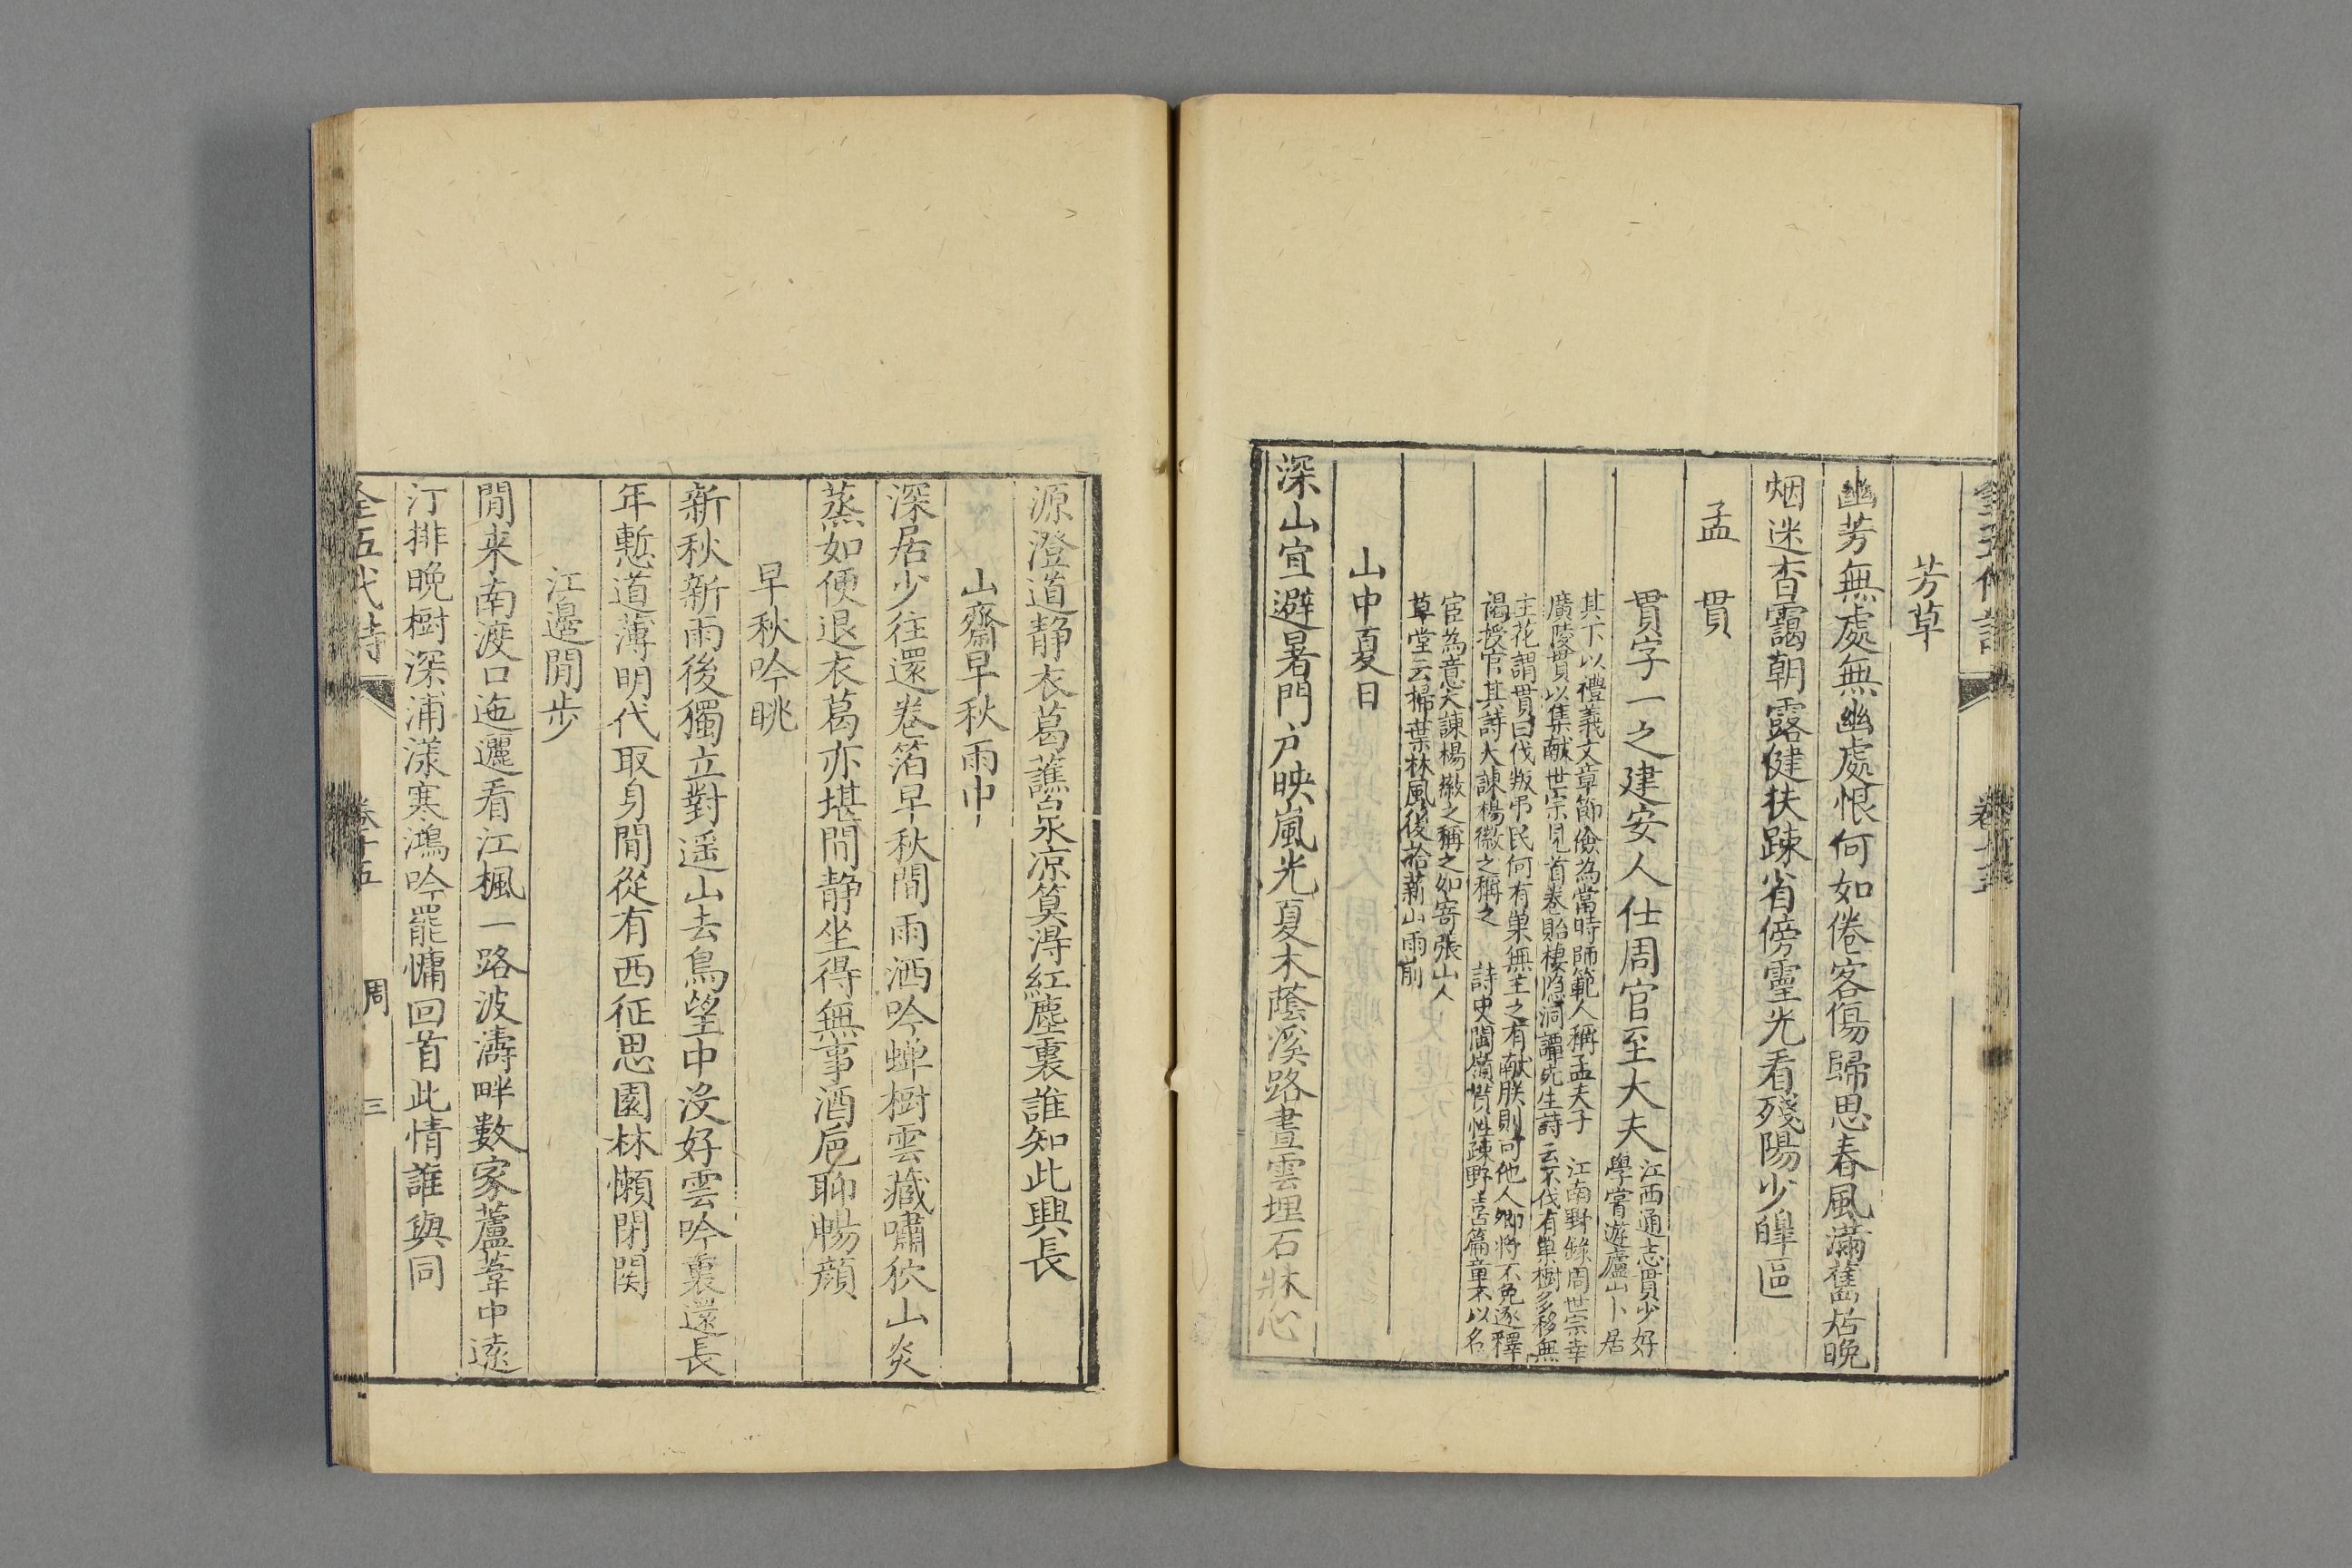 芳草
幽芳無處無幽處恨何如倦客傷歸思春風滿舊居晚
烟迷杳靄朝露健扶踈省傍靈光看殘陽少皥區
孟貫
貫字一之建安人仕周官至大夫
江西通志貫少好
學嘗遊廬山卜居
其下以禮義文章節儉為當時師範人稱孟夫子　江南野錄周世宗幸
廣陵貫以集献世宗見首卷貽棲隐洞譚先生詩云不伐有巢樹多移無
主花謂貫曰伐叛弔民何有巢無主之有献朕則可他人卿將不免遂釋
褐授官其詩大諫楊徽之稱之　詩史閩嶺貫性踈野喜篇章不以名
宦為意大諫楊徽之稱之如寄張山人
草堂云掃葉林風後拾薪山雨前
山中夏日
深山宜避暑門户映嵐光夏木蔭溪路晝雲埋石牀心
源澄道静衣葛蘸泉凉算得紅塵裏誰知此興長
山齋早秋雨中
深居少往還卷箔早秋間雨洒吟蝉樹雲藏嘯狖山炎
蒸如便退衣葛亦堪閒静坐得無事酒巵聊暢顔
早秋吟眺
新秋新雨後獨立對遥山去鳥望中没好雲吟裏還長
年慙道薄明代取身閒從有西征思園林懶閉関
江邊閒步
閒来南渡口迤邐看江楓一路波濤畔數家蘆葦中遠
汀排晚樹深浦漾寒鴻吟罷慵回首此情誰與同
全五代詩
卷十五
周
三